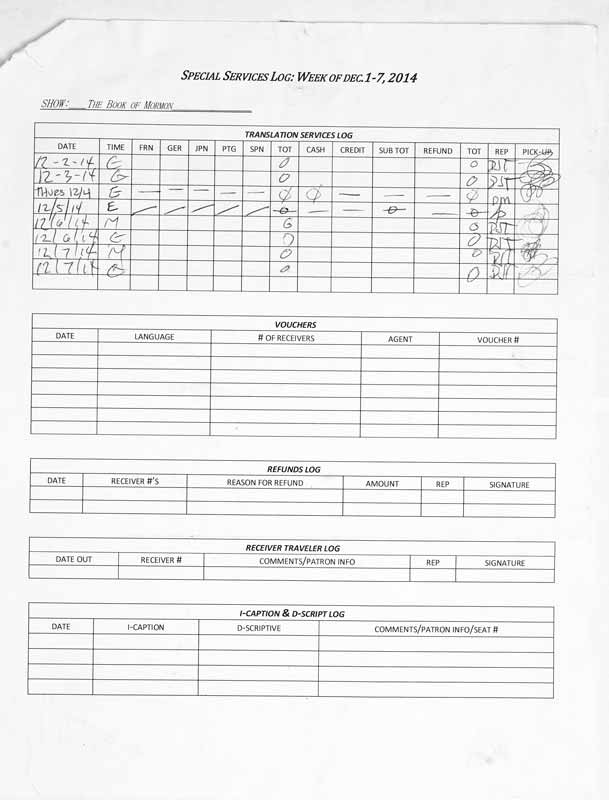 SPECIAL SERVICES LOG: WEEK OF DEC.1-7, 2014
SHOW: THE BOOK OF MORMON
TRANSLATION SERVICES LOG
DATE TIME FRN GER JPN PTG SPN TOT CASH CREDIT SUB TOT REFUND TOT REP PICK-UP
12-2-14 E 0 0 DST
12-3-14 E 0 0 DST
THURS 12/4 E — — — — — Ø Ø — — — Ø DM
12/5/14 E 0 — — 0 — 0
12/6/14 M 0 0 DST
12/6/14 E 0 0 DST
12/7/14 M 0 0 DST
12/7/14 E 0 0 DST
VOUCHERS
DATE LANGUAGE # OF RECEIVERS AGENT VOUCHER #
REFUNDS LOG
DATE RECEIVER #'S REASON FOR REFUND AMOUNT REP SIGNATURE
RECEIVER TRAVELER LOG
DATE OUT RECEIVER # COMMENTS/PATRON INFO REP SIGNATURE
I-CAPTION & D-SCRIPT LOG
DATE I-CAPTION D-SCRIPTIVE COMMENTS/PATRON INFO/SEAT #